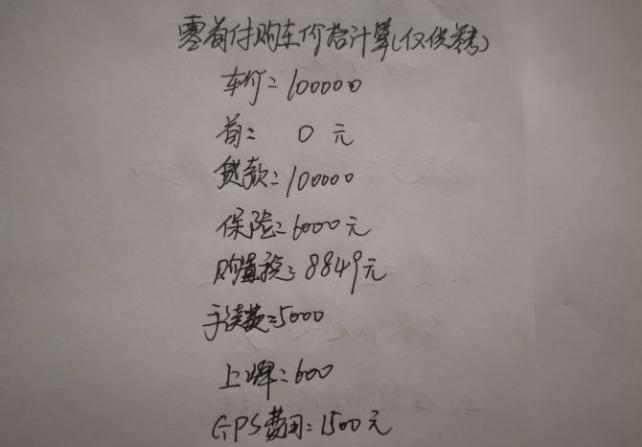 零首付购车价格计算(仅供参考)
车价=100000
首= 0元
贷款=100000
保险=6000元
购置税=8849元
手续费=5000
上牌=600
GPS费用=1500元